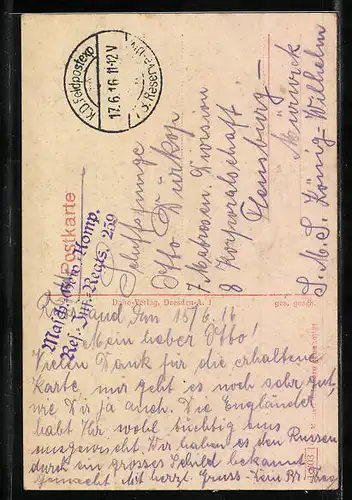 K.D. Feldpostexp.
17.6.16. 11-12 V
Reserve
Postkarte
Masch. Gew. Komp.
Res. Inf. Regts. 259
Schiffsjunge
Otto Dürkop
7. Matrosen Division
8 Korporalschaft
Flensburg-
Mürwick
S.M.S. König-Wilhelm
Verlag, Dresden-A. 1
ges. gesch.
Russland, den 15/6.16
Mein lieber Otto!
Vielen Dank für die erhaltene
Karte, mir geht es noch sehr gut,
wie Dir ja auch. Die Engländer
habt Ihr wohl tüchtig aus
ausgewischt. Wir haben es den Russen
durch ein grosses Schild bekannt
gemacht. Mit herzl. Gruss Dein